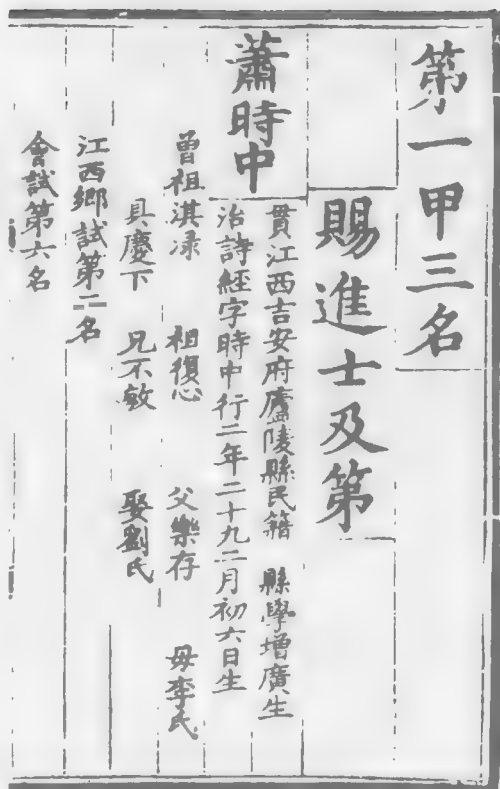 第一甲三名
賜進士及第
蕭時中
貫江西吉安府廬陵縣民籍　縣學增廣生
治詩經字時中行二年二十九二月初六日生
曾祖淇淥　祖復心　父樂存　母李氏
具慶下　兄不敏　娶劉氏
江西鄉試第二名
會試第六名